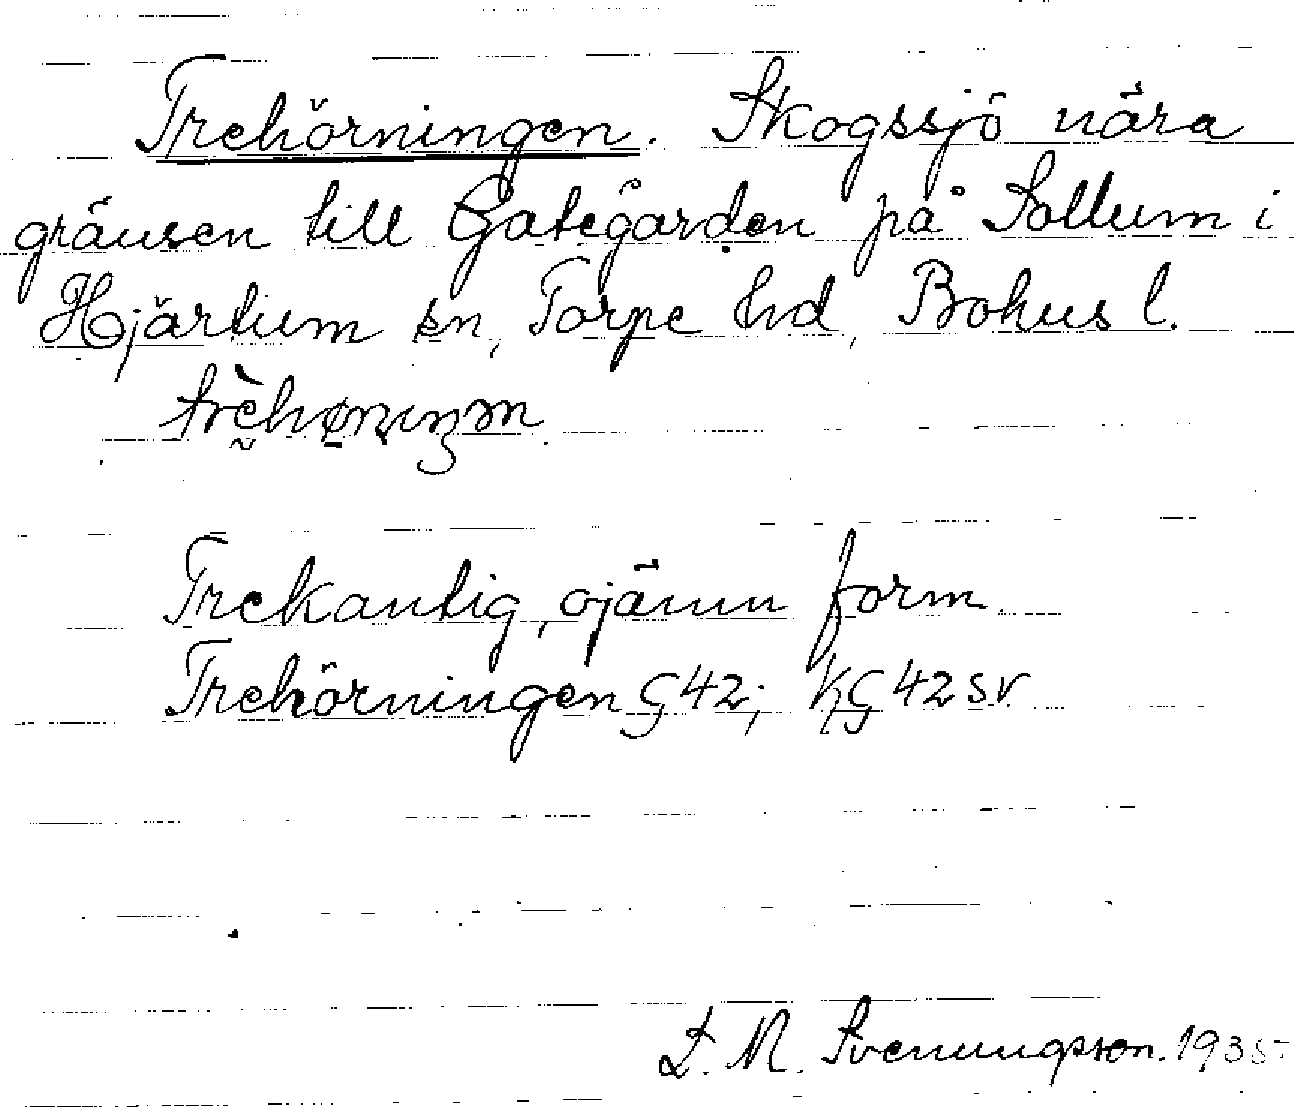 Trehörningen. Skogssjö nära
gränsen till Gategården på Sollum i
Hjärtum sn, Torpe hd, Bohus l.
Trekantig, ojämn form
Trehörningen G42; KG 42 sv
S. M. Svenungsson. 1935